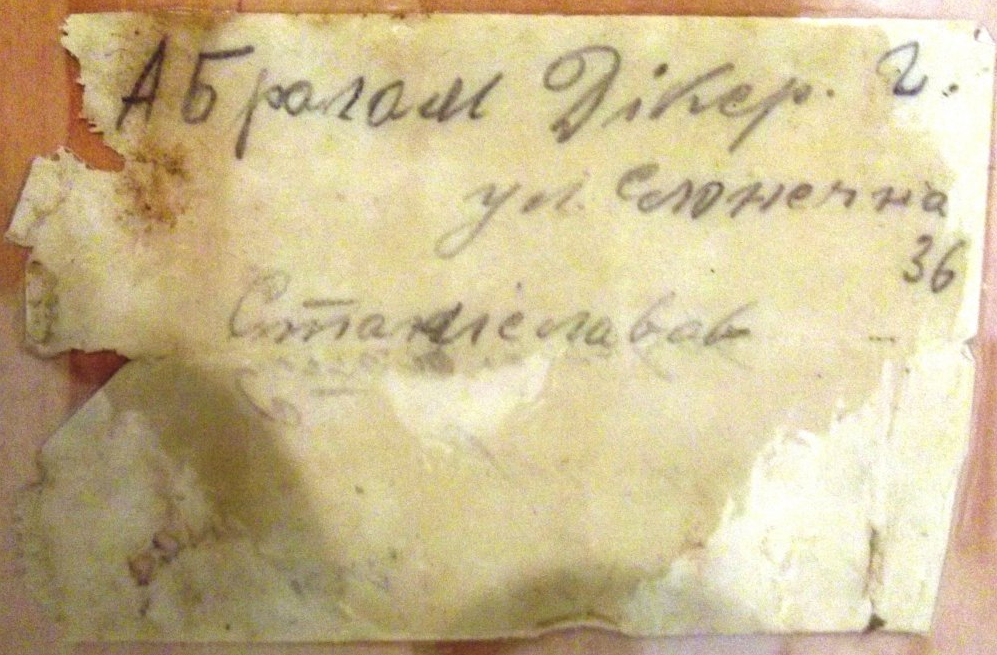 Абрагам Дікер. г.
ул. Слонечна
36
Станіславов